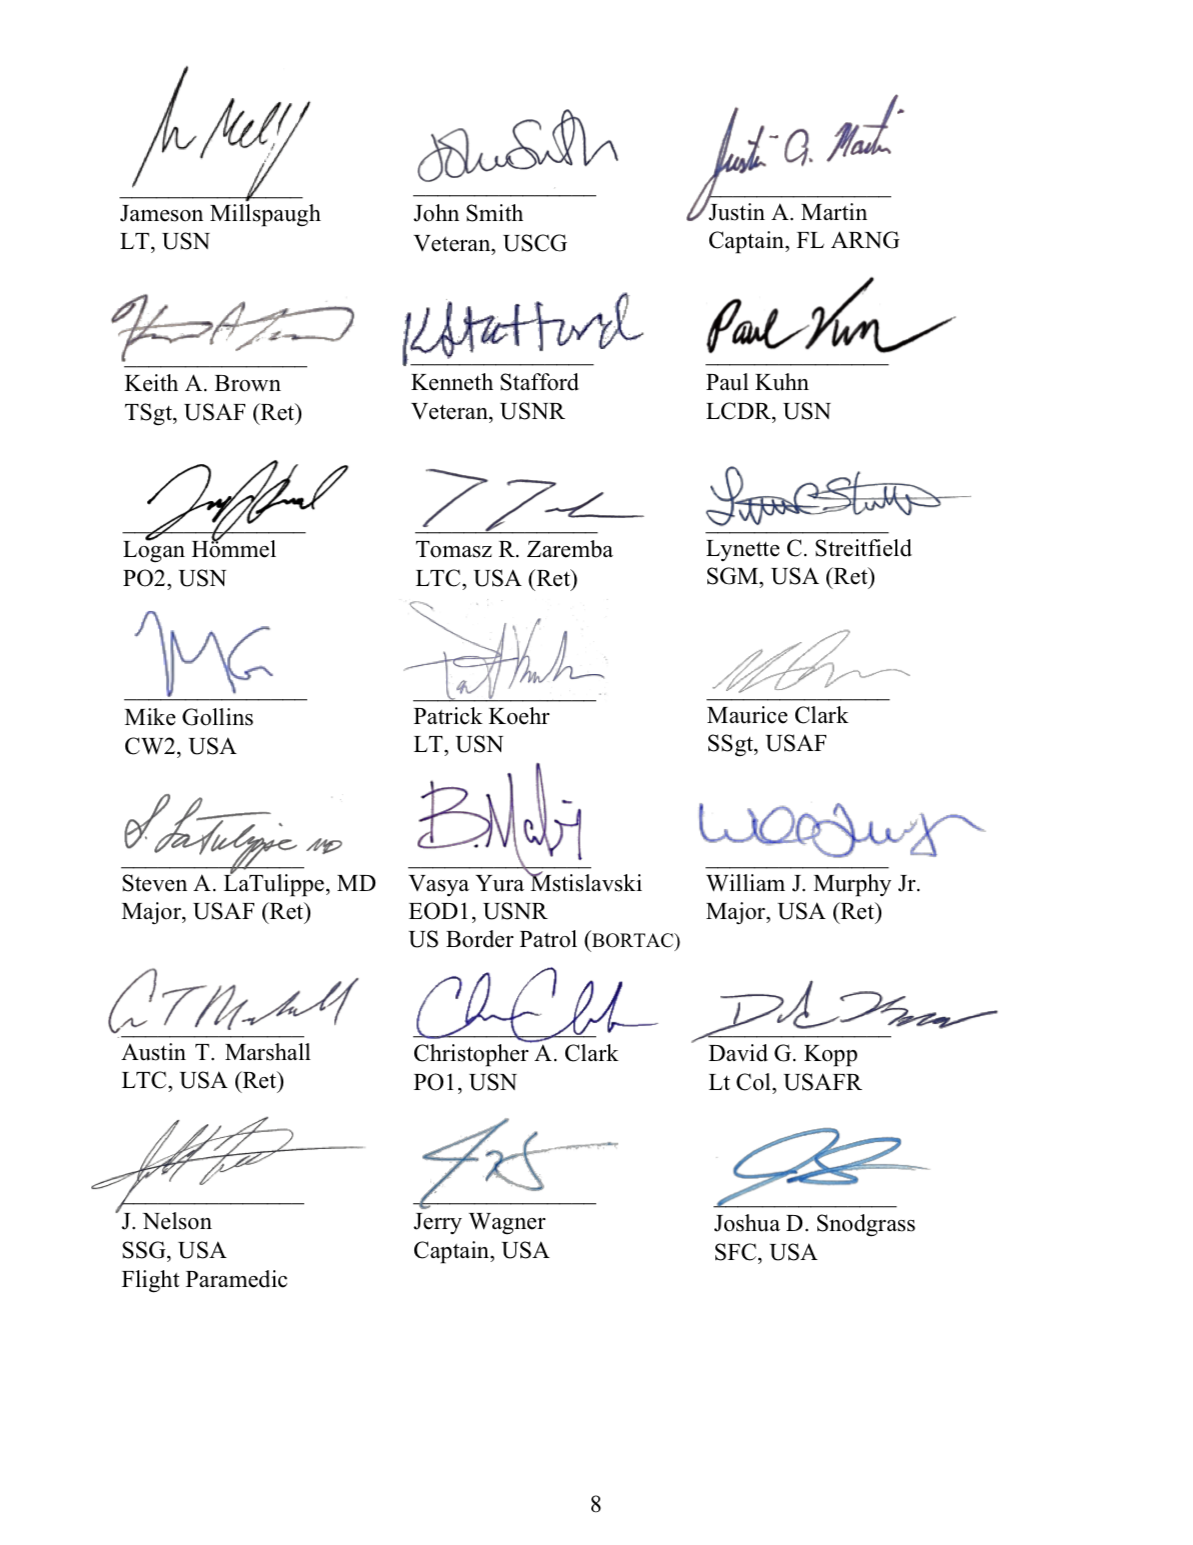 Jameson Millspaugh
LT, USN
John Smith
John Smith
Veteran, USCG
Justin A. Martin
Justin A. Martin
Captain, FL ARNG
Keith A. Brown
TSgt, USAF (Ret)
KStafford
Kenneth Stafford
Veteran, USNR
Paul Kuhn
Paul Kuhn
LCDR, USN
Logan Hommel
PO2, USN
Tomasz R. Zaremba
LTC, USA (Ret)
Lynette C. Streitfield
SGM, USA (Ret)
Mike Gollins
CW2, USA
Patrick Koehr
LT, USN
Maurice Clark
SSgt, USAF
S. LaTulippe MD
Steven A. LaTulippe, MD
Major, USAF (Ret)
Vasya Yura Mstislavski
EOD1, USNR
US Border Patrol (BORTAC)
William J. Murphy Jr.
Major, USA (Ret)
Austin T. Marshall
LTC, USA (Ret)
Christopher A. Clark
PO1, USN
David G. Kopp
Lt Col, USAFR
J. Nelson
SSG, USA
Flight Paramedic
Jerry Wagner
Captain, USA
Joshua D. Snodgrass
SFC, USA
8